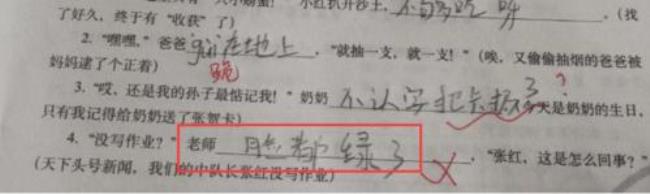 小红扒开沙土，(找
了好久，终于有“收获”了)
2. “嘿嘿，”爸爸guì在地上，“就抽一支，就一支！”(唉，又偷偷抽烟的爸爸被
妈妈逮了个正着) 跪
3. “哎，还是我的孙子最惦记我！”奶奶不认字把卡扔了?今天是奶奶的生日，
只有我记得给奶奶送了张贺卡)
4. “没写作业？”老师脸都绿了，“张红，这是怎么回事？”
(天下头号新闻，我们的中队长张红没写作业)